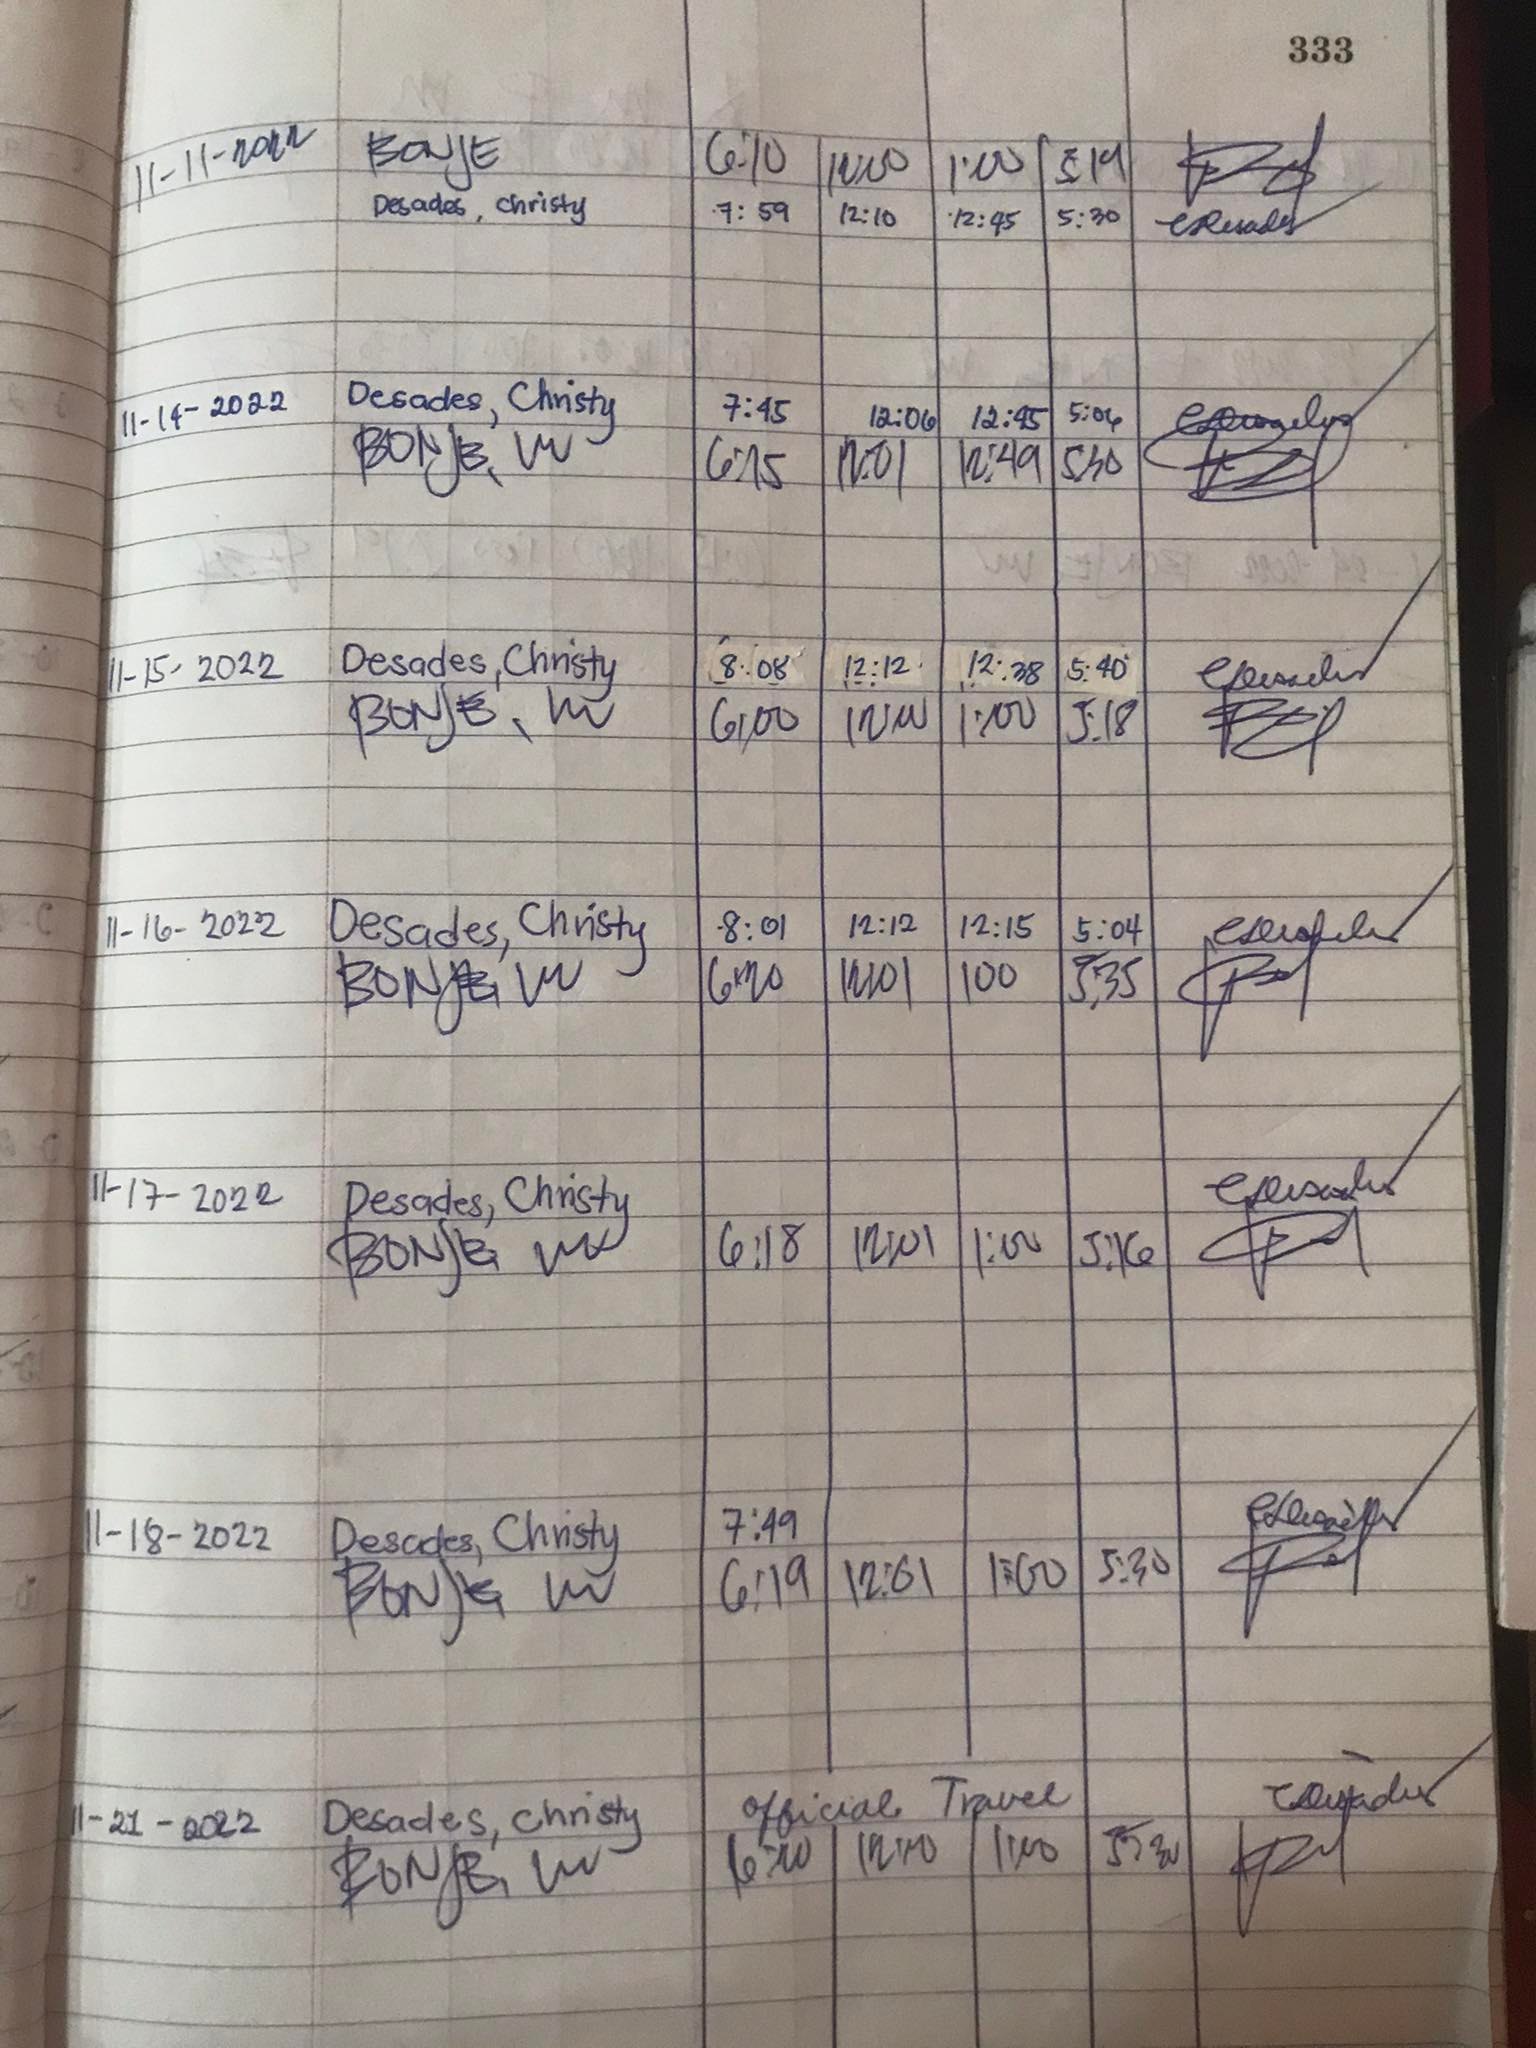 333
11-11-2022 BONJE 6:10 12:00 1:00 5:19
Desades, Christy 7:59 12:10 12:45 5:30
11-14-2022 Desades, Christy 7:45 12:06 12:45 5:06
BONJE, 6:15 12:01 12:49 5:30
11-15-2022 Desades, Christy 8:08 12:12 12:38 5:40
BONJE, 6:00 12:00 1:00 5:18
11-16-2022 Desades, Christy 8:01 12:12 12:15 5:04
BONJE, 6:20 12:01 100 5:35
11-17-2022 Desades, Christy
BONJE 6:18 12:01 1:00 5:16
11-18-2022 Desades, Christy 7:49
BONJE 6:19 12:01 1:00 5:30
11-21-2022 Desades, Christy Official Travel
BONJE, 1:00 5:30